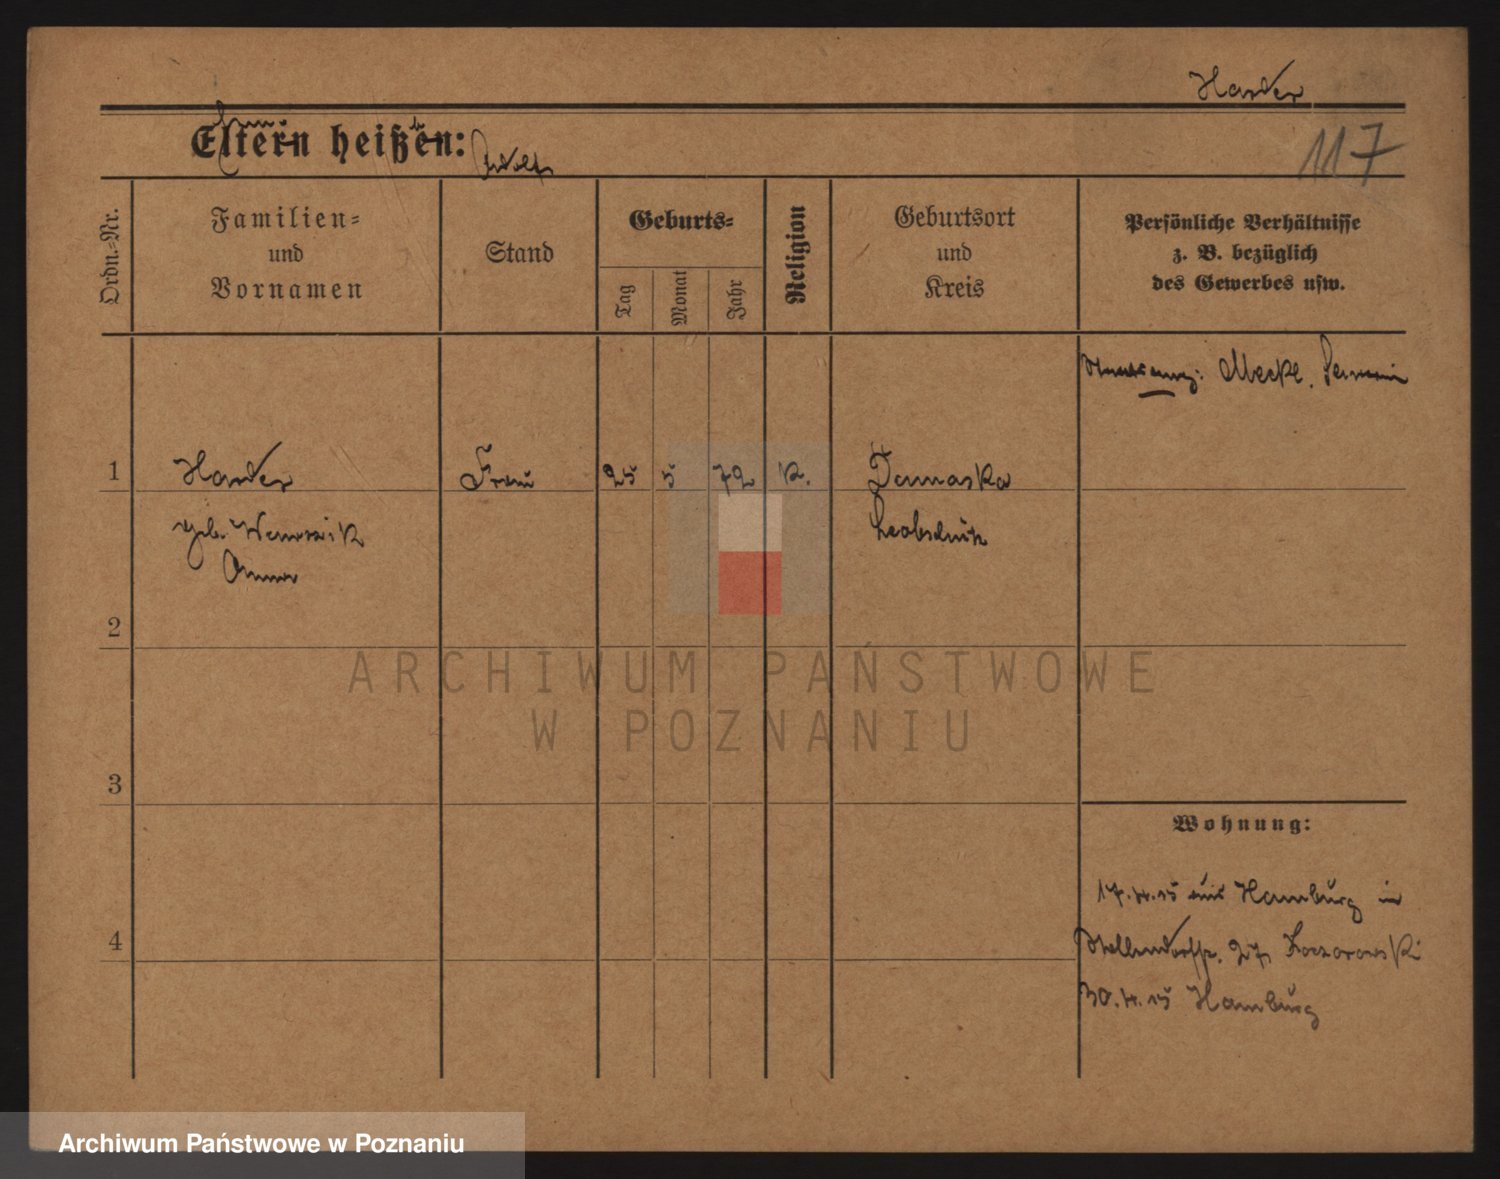 Harder
117
Eltern heißen:
Adolf
Ordn.=Nr.
Familien=
und
Vornamen
Stand
Geburts=
Tag
Monat
Jahr
Religion
Geburtsort
und
Kreis
Persönliche Verhältnisse
z. B. bezüglich
des Gewerbes usw.
Meckl.
1
Harder
Frau
25
5
72
K.
Damaska
geb.
Leobschütz
Anna
2
3
Wohnung:
17.4.15 aus Hamburg in
27
4
30.4.15 Hamburg
ARCHIWUM PAŃSTWOWE
W POZNANIU
Archiwum Państwowe w Poznaniu